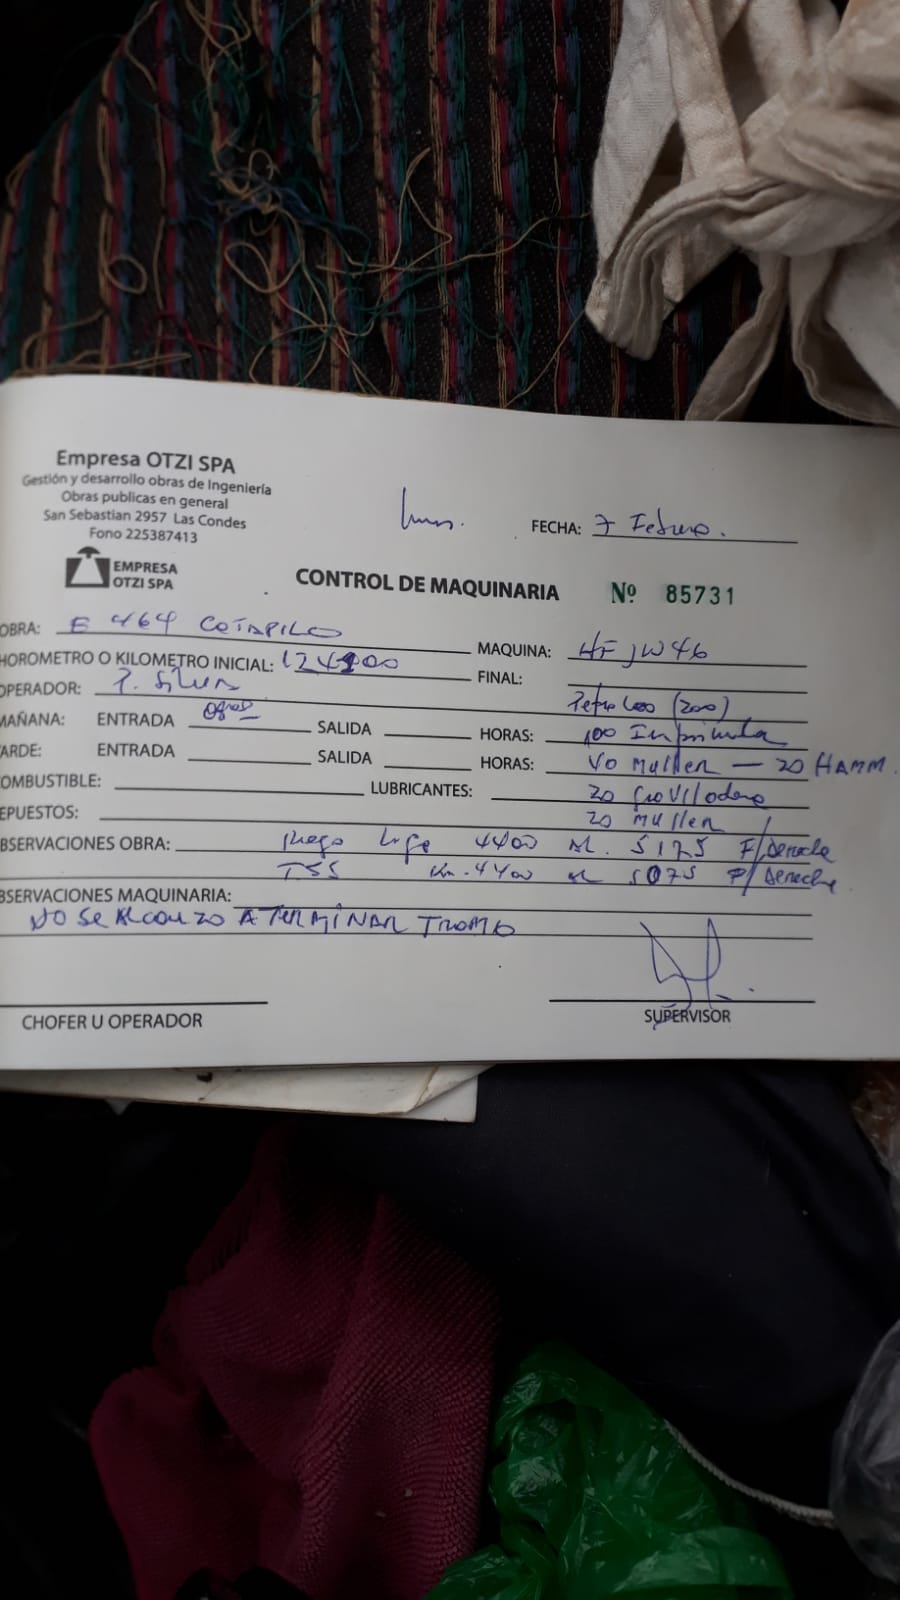 Empresa OTZI SPA
Gestión y desarrollo obras de Ingeniería
Obras publicas en general
San Sebastian 2957 Las Condes
Fono 225387413
EMPRESA
OTZI SPA
FECHA: 7 Febrero.
CONTROL DE MAQUINARIA Nº 85731
OBRA: E 464 COTAPILO
MAQUINA: HF JW46
HOROMETRO O KILOMETRO INICIAL:
FINAL:
OPERADOR: P. Silva
Petroleo (200)
MAÑANA: ENTRADA SALIDA HORAS: 100
TARDE: ENTRADA SALIDA HORAS: 40 Muller — 20 HAMM.
COMBUSTIBLE: LUBRICANTES: 20
REPUESTOS: 20 Muller
OBSERVACIONES OBRA: Riego 4400 AL 5175 F/Derecha
TSS Km. 4400 AL 5075 P/Derecha
OBSERVACIONES MAQUINARIA:
NO SE ALCANZO A TERMINAR TRAMO
CHOFER U OPERADOR
SUPERVISOR